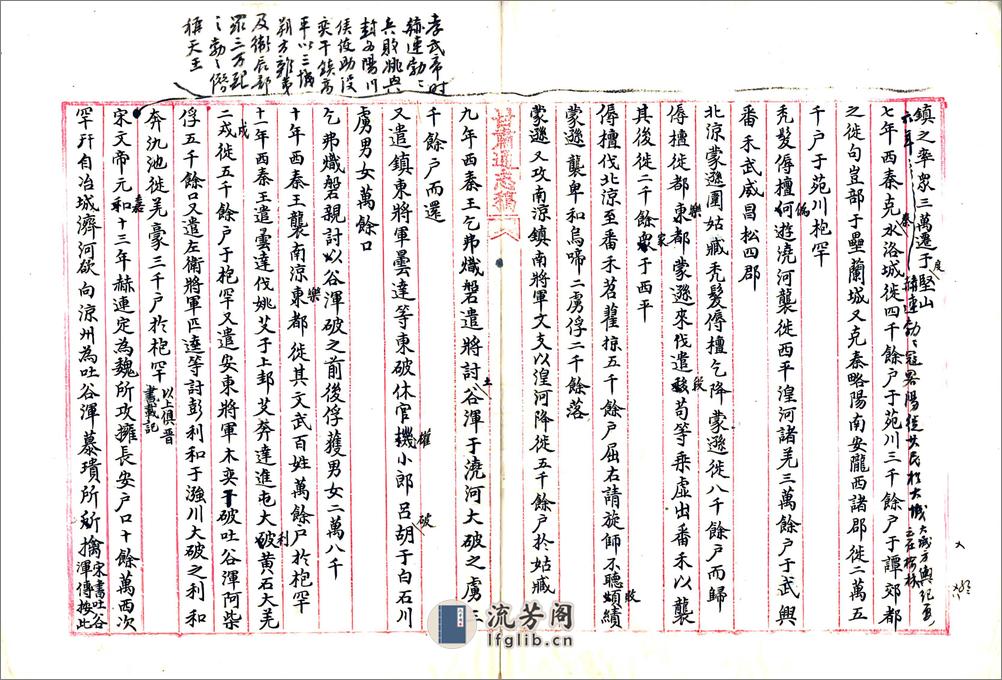 孝武帝时
赫連勃々
兵敗姚興
封五陽川
侯使助没
奕干鎮高
平以三城
朔方雜夷
及衛辰部
眾三万配
之勃々僭
稱天王
鎮之率眾三萬遷于堅山
度
六年
赫連勃々寇畧陽徙其民於大城
七年西秦克水洛城徙四千餘户于苑川三千餘户于譚郊都
秦
之徙句豈部于壘蘭城又克秦略陽南安隴西諸郡徙二萬五
千户于苑川枹罕
秃髮傉檀何遊澆河襲徙西平湟河諸羌三萬餘户于武興
偽
番禾武威昌松四郡
北涼蒙遜圍姑臧秃髮傉檀乞降蒙遜徙八千餘户而歸
傉檀徙都東都蒙遜來伐遣苟等乘虛出番禾以襲
樂
段
其後徙三千餘家于西平
家
傉檀伐北涼至番禾苕藋掠五千餘户屈右請旋師不聽敗績
敗
蒙遜襲卑和烏啼二虜俘二千餘落
蒙遜又攻南涼鎮南將軍文支以湟河降徙五千餘户於姑臧
甘肅通志稿
九年西秦王乞弗熾磐遣將討谷渾于澆河大破之虜三
土
千餘户而還
又遣鎮東將軍曇達等東破休官機小郎呂胡于白石川
權
破
虜男女萬餘口
乞弗熾磐親討以谷渾破之前後俘獲男女二萬八千
十年西秦王襲南涼東都徙其文武百姓萬餘户於枹罕
樂
十一年西秦王遣曇達伐姚艾于上邽艾奔達進屯大破黃石大羌
利
二戎徙五千餘户于枹罕又遣安東將軍木奕于破吐谷渾阿柴
戍
俘五千餘口又遣左衛將軍匹達等討彭利和于漒川大破之利和
奔仇池徙羌豪三千户於枹罕
以上俱晋
書載記
宋文帝元和十三年赫連定為魏所攻擁長安户口十餘萬西次
嘉
罕幵自冶城濟河欲向涼州為吐谷渾慕璝所擒
宋書吐谷
渾傳按此
流芳阁
lfglib.cn